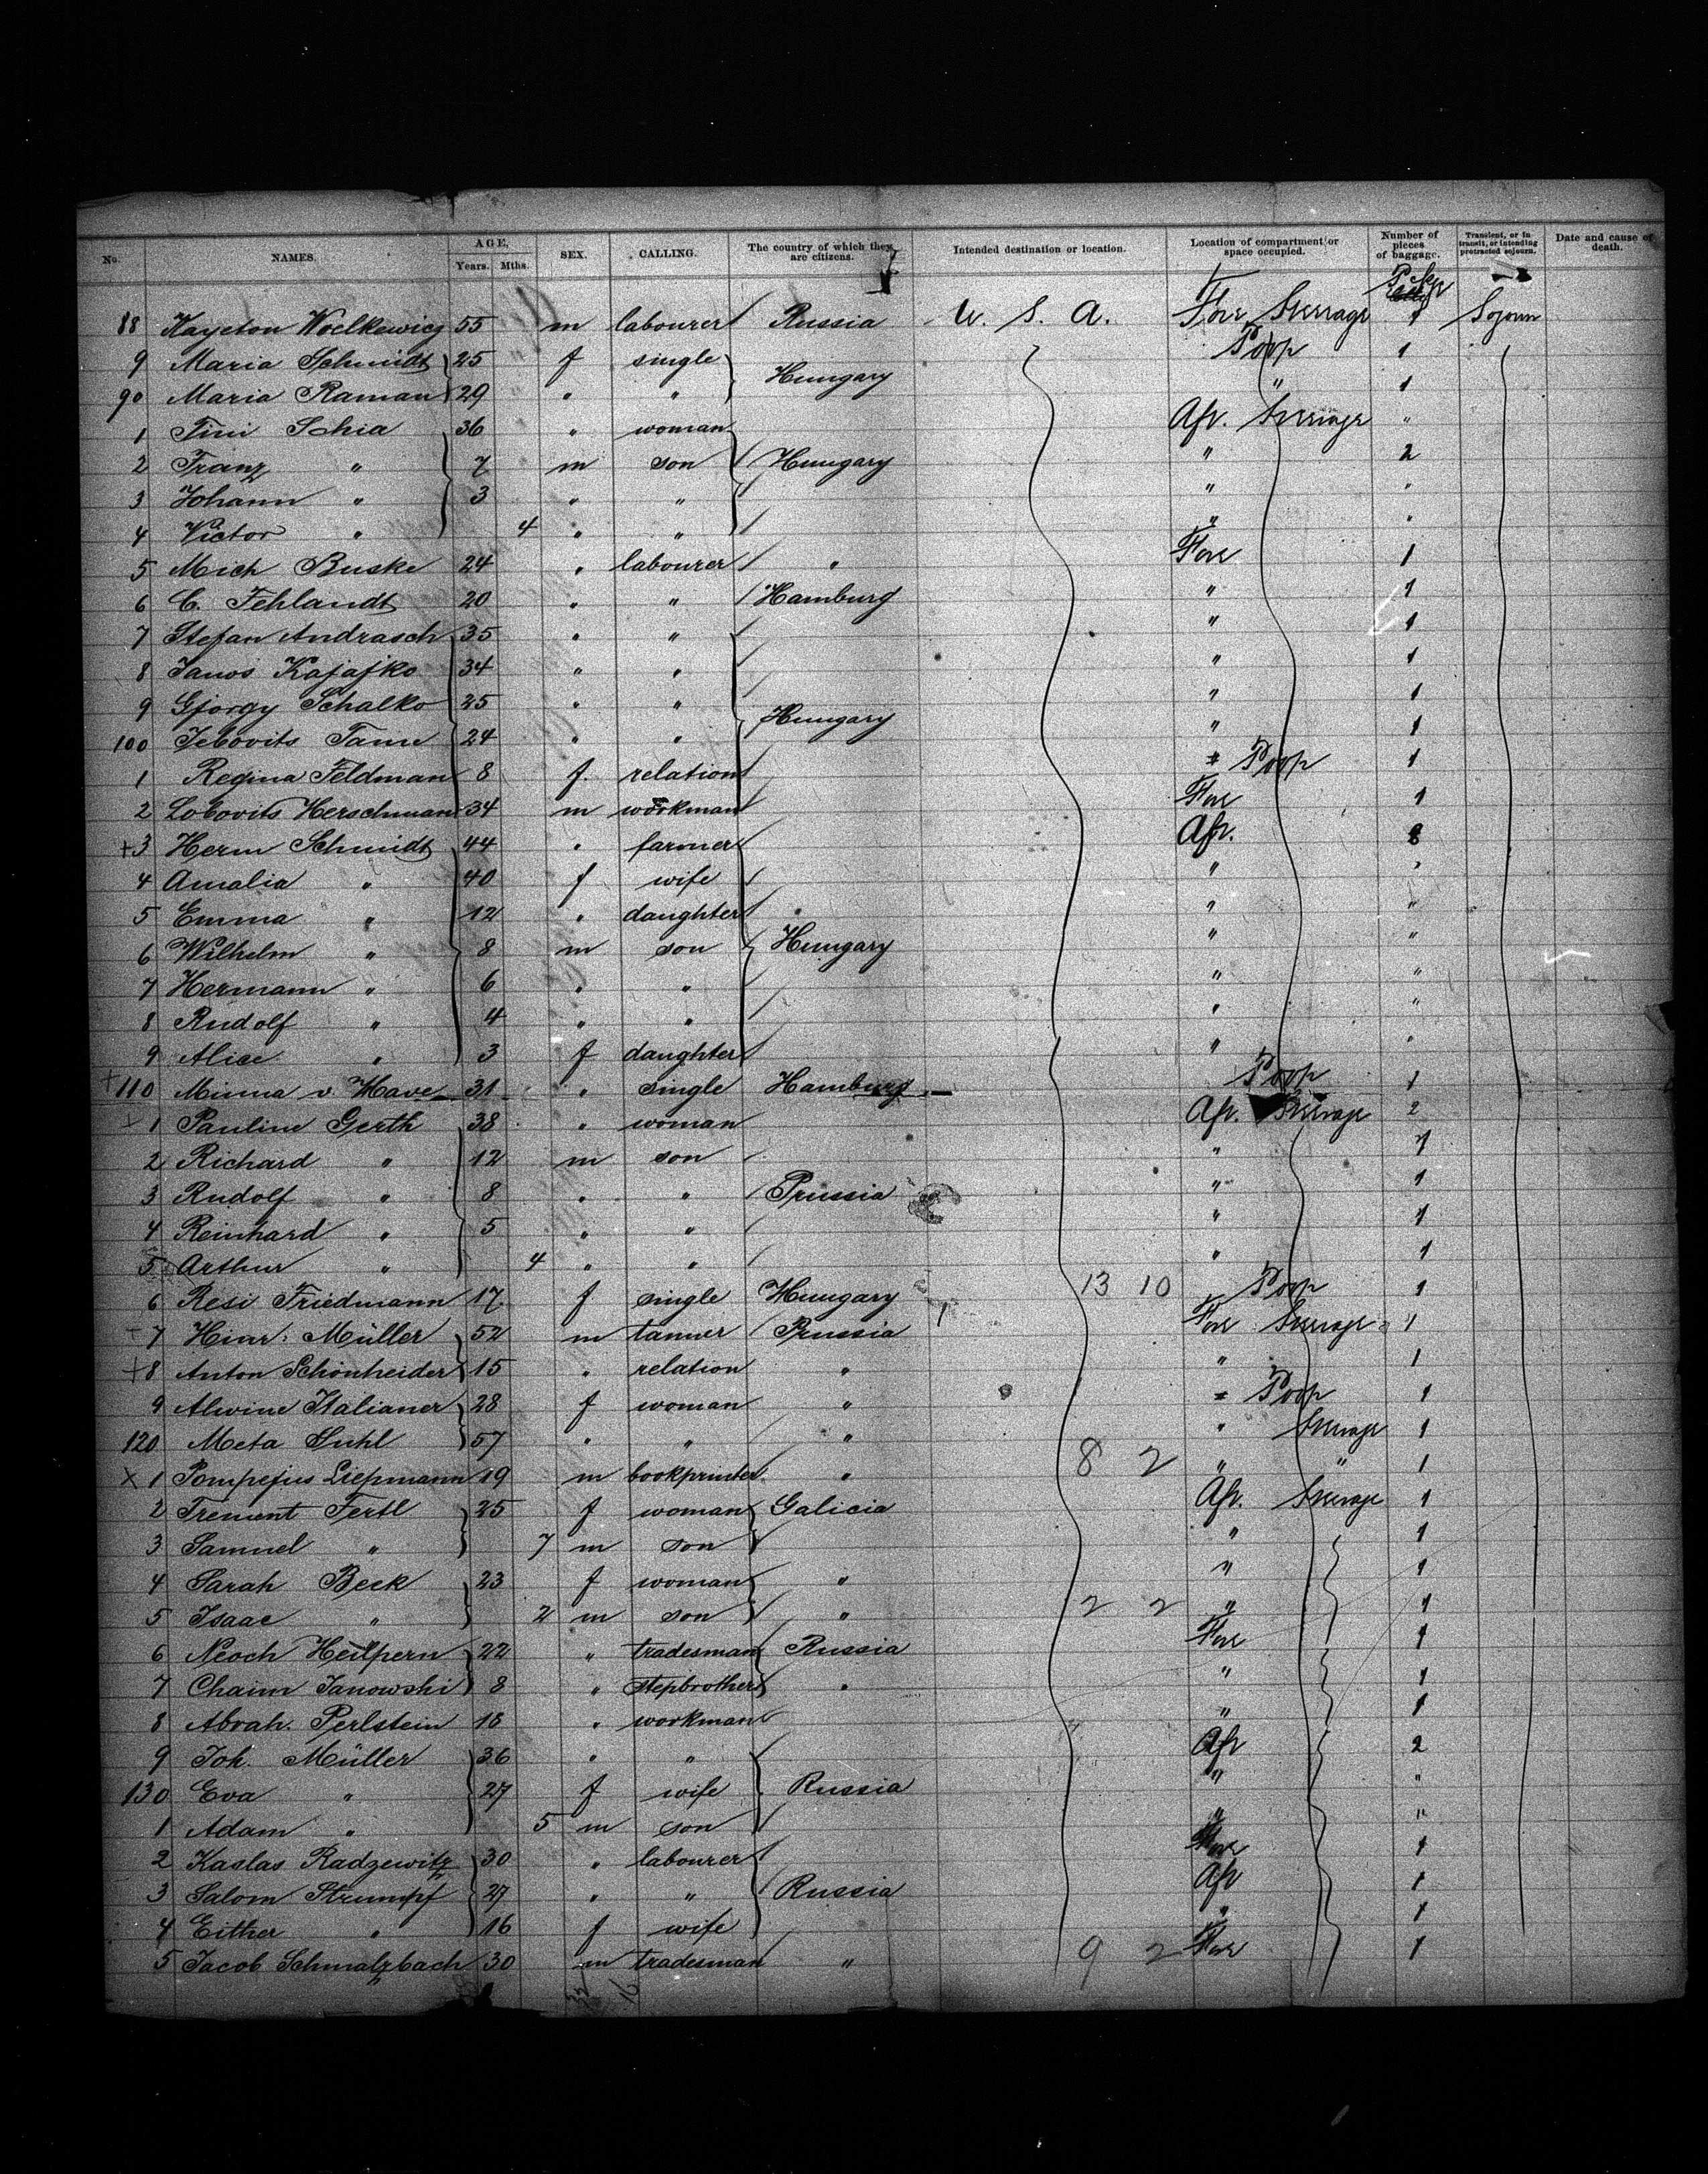 No. NAMES. AGE, Years. Mths. SEX. CALLING. The country of which they are citizens. Intended destination or location. Location of compartment or space occupied. Number of pieces of baggage. Transient, or in transit, or intending protracted sojourn. Date and cause of death.
88 Kayeton Woelkewicz 55 m labourer Russia U. S. A. Fore Steerage 1 Sojourn
9 Maria Schmidt 25 f single Poop 1
Hungary
90 Maria Raman 29 " " " 1
1 Tini Schia 36 " woman Aft. Steerage "
2 Franz " 7 m son Hungary " 2
3 Johann " 3 " " " "
4 Victor " 4 " " " "
5 Mich Buske 24 " labourer " Fore 1
6 C. Fehlandt 20 " " Hamburg " 1
7 Stefan Andrasch 35 " " " 1
8 Janos Kajajko 34 " " " 1
9 Gjorgy Schalko 25 " " " 1
Hungary
100 Jebovits Tanne 24 " " " 1
1 Regina Feldman 8 f. relation Poop 1
2 Lobovits Herschmann 34 m workman Fore 1
+3 Herm Schmidt 44 " farmer Aft. 8
4 Amalia " 40 f wife " "
5 Emma " 12 " daughter " " "
6 Wilhelm " 8 m son Hungary " "
7 Hermann " 6 " " " "
8 Rudolf " 4 " " " "
9 Alice " 3 f daughter " "
+110 Minna v. Have 31 " single Hamburg Poop 1
1 Pauline Gerth 38 " woman Aft. Steerage 2
2 Richard " 12 m son " 1
3 Rudolf " 8 " " Prussia " 1
4 Reinhard " 5 " " " 1
5 Arthur " 4 " " " 1
6 Resi Friedmann 17 f single Hungary 13 10 Poop 1
7 Hinr. Müller 52 m tanner Prussia Fore Steerage 1
+8 Anton Schönheider 15 " relation " " 1
9 Alwine Italianer 28 f woman " Poop 1
120 Meta Suhl 57 " " " " Steerage 1
x 1 Pompejus Liepmann 19 m bookprinter " 8 2 " " 1
2 Trement Fertl 25 f woman Galicia Aft. Steerage 1
3 Samuel " 7 m son " 1
4 Sarah Beck 23 f woman " " 1
5 Isaac " 2 m son " 2 2 " 1
6 Neoch Heilpern 22 " tradesman Russia Fore 1
7 Chaim Janowski 8 " stepbrother " " 1
8 Abrah. Perlstein 18 " workman " 1
9 Joh. Müller 36 " " Aft 2
130 Eva " 27 f wife Russia " "
1 Adam " 5 m son " "
2 Kaslas Radzewitz 30 " labourer Fore 1
3 Salom Strumpf 27 " " Russia Aft 1
4 Either " 16 f wife " 1
5 Jacob Schmalzbach 30 m tradesman " 9 2 Fore 1